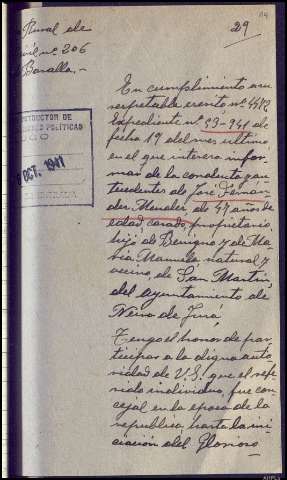 29
Rural de
ivil nº 206
Baralla.-
En cumplimiento a su
respetable escrito nº 4482
Expediente nº 93-941 de
fecha 19 del mes ultimo
en el que interesa infor-
mes de la conducta y an-
tecedentes de José Fernan-
dez Mendez, de 47 años de
edad, casado, propietario,
hijo de Benigno y de Ma-
ria Manuela, natural y
vecino, de San Martin,
del ayuntamiento de
Neira de Jusá
Tengo el honor de par-
ticipar a la digna auto-
ridad de V.S. que el refe-
rido individuo, fue con-
cejal en la epoca de la
republica, hasta la ini-
ciación del Glorioso
RUCTOR DE
POLÍTICAS
UGO
OCT. 1941
AHPLu